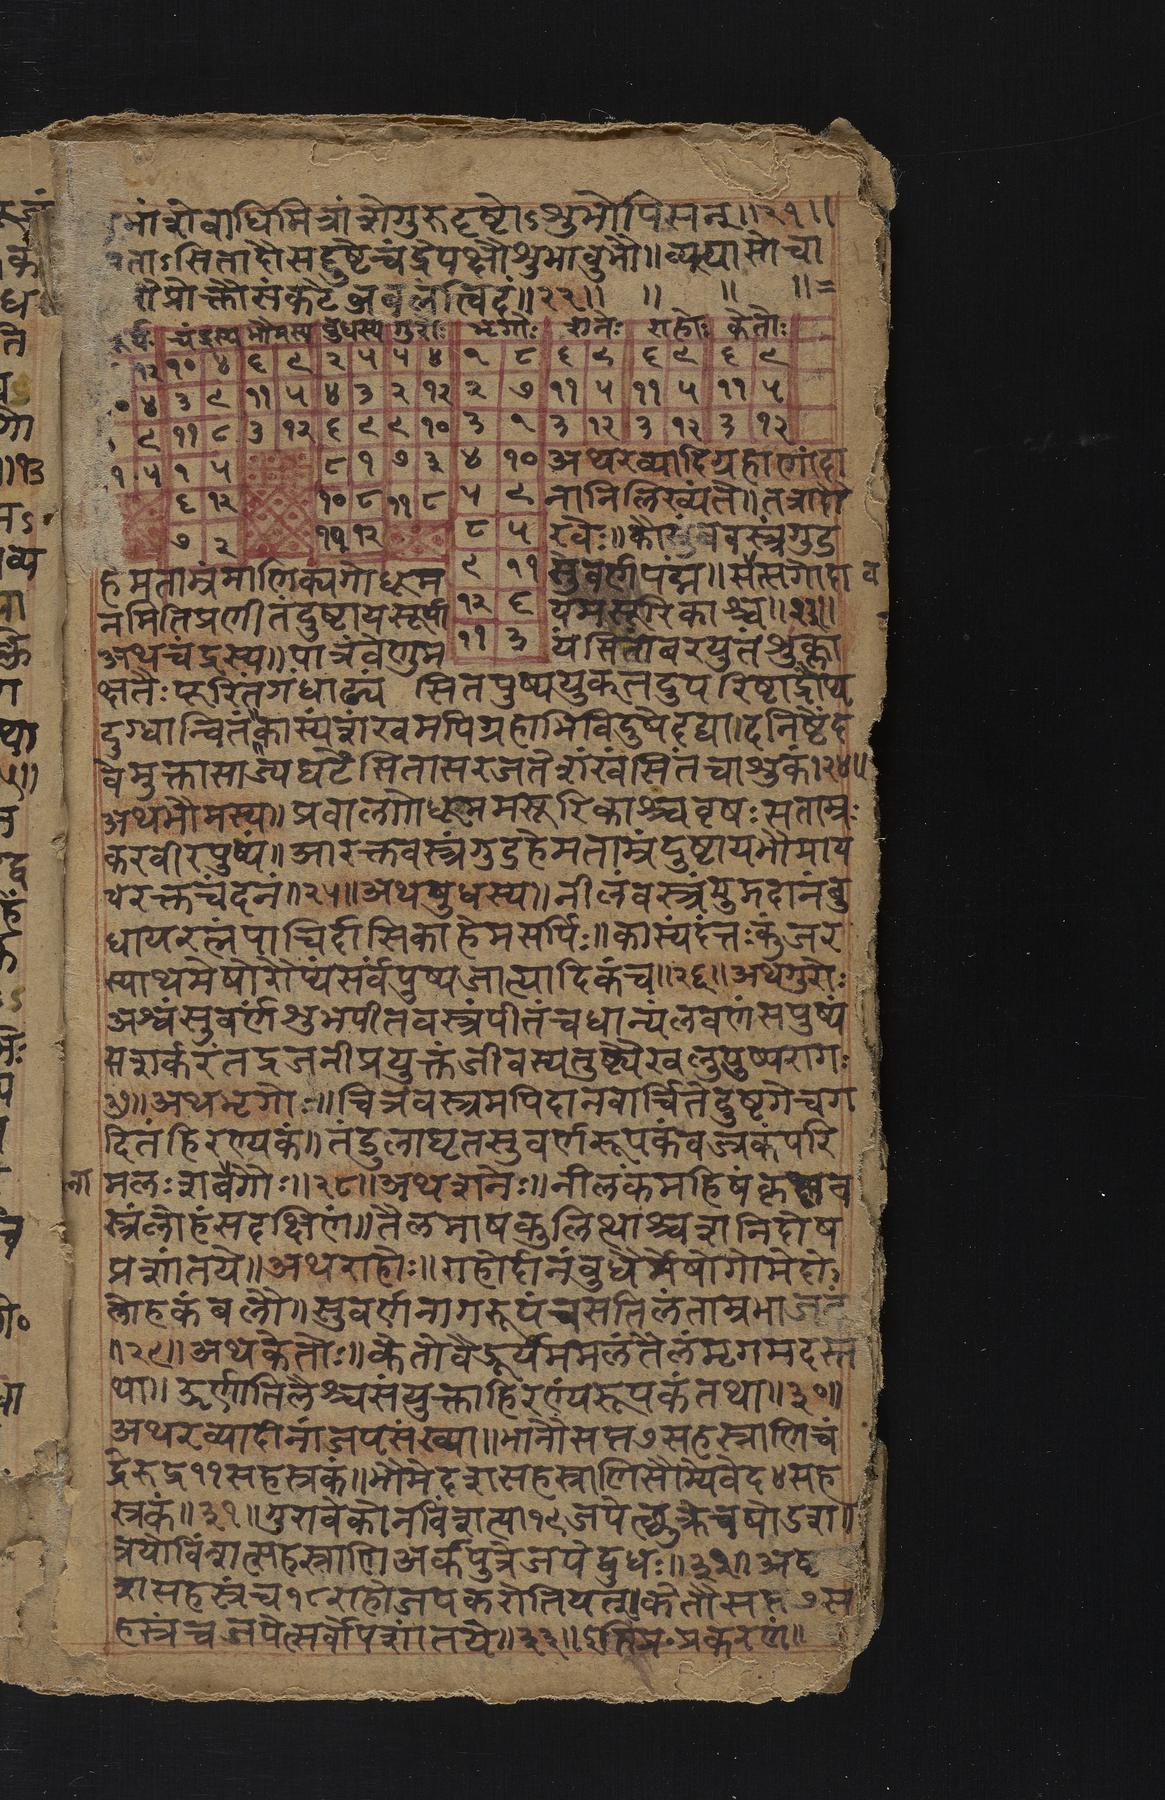 भांशेवाधिमित्रांशेगुरुदृष्टोऽशुभोपिसन्॥२१॥
ताऽसितादौसद्दुष्टेचंद्रेपक्षौशुभावुभौ॥व्यत्यासेचा
प्रोक्तौसंकटेअबलंत्विदं॥२२॥ ॥ ॥ ॥=
चंद्रस्य भौमस्य बुधस्य गुरोः भृगोः शनेः राहोः केतोः
१२ १० ४ ६ ९ २ ५ ५ ४ १ ८ ६ ९ ६ ९ ६ ९
४ ३ ९ ११ ५ ४ ३ २ १२ २ ७ ११ ५ ११ ५ ११ ५
९ ११ ८ ३ १२ ६ ९ ९ १० ३ १ ३ १२ ३ १२ ३ १२
१ ५ १ ५ ८ १ ७ ३ ४ १० अथरव्यादिग्रहाणांदा
६ १२ १० ८ ११ ८ ५ ९ नानिलिख्यंते॥तत्रादौ
७ २ ११ १२ ८ ५ रवेः॥कौसुंबवस्त्रंगुड
हेमताम्रंमाणिक्यगोधूम ९ ११ सुवर्णपद्मं॥सवत्सगोदा
नमितिप्रणीतंदुष्टायसूर्या १२ ६ यमसूरिकाश्च॥२३॥
अथचंद्रस्य॥पात्रंवेणुम ११ ३ यंसितांबरयुतंशुक्ला
क्षतैःपूरितंगंधाढ्यं सितपुष्पयुक्तदुपरिष्टाद्रौप्य
दुग्धान्वितंकांस्यंशंखमपिग्रहाभिविदुषेदद्या।दनिष्टेंद
वेमुक्तासाज्यघटंसितासरजतंशंखंसितंचांशुकं।२४॥
अथभौमस्य॥प्रवालगोधूममसूरिकाश्चवृषःसताम्रः
करवीरपुष्पं॥आरक्तवस्त्रंगुडहेमताम्रंदुष्टायभौमाय
चरक्तचंदनं॥२५॥अथबुधस्य॥नीलंवस्त्रंमुद्गदानंबु
धायरत्नंपाचिर्दासिकाहेमसर्पिः॥कांस्यंदंतःकुंजर
स्याथमेषोरौप्यंसर्वपुष्पजात्यादिकंच॥२६॥अथगुरोः
अश्वंसुवर्णंशुभपीतवस्त्रंपीतंचधान्यंलवणंसपुष्पं
सशर्करंतद्रजनीप्रयुक्तंजीवस्यतुष्ट्यैखलुपुष्परागः
७॥अथभृगोः॥चित्रवस्त्रमपिदानवार्चितेदुष्टगेचग
दितंहिरण्यकं॥तंडुलाघृतसुवर्णरूपकंवज्रकंपरि
मलःशर्बगौः॥२८॥अथशनेः॥नीलंकमहिषंकृष्णंव
स्त्रंलोहंसदक्षिणं॥तैलमाषकुलित्थाश्चशनिदोष
प्रशांतये॥अथराहोः॥राहोर्दानंबुधैर्मेषोगोमेदो
लोहकंबलौ॥सुवर्णनागरूपंचसतिलंताम्रभाजनं
॥२९॥अथकेतोः॥केतोवैडूर्यममलंतैलंमृगमदस्त
था॥ऊर्णातिलैश्चसंयुक्ताहिरण्यरूपकंतथा॥३०॥
अथरव्यादीनांजपसंख्या॥भानौसप्त७सहस्राणिचं
द्रेरुद्र११सहस्रकं॥भौमेदशसहस्राणिसौम्येवेद४सह
स्रकं॥३१॥गुरावेकोनविंशत्या१९जपेत्छुक्रेचषोडश॥
त्रयोविंशत्सहस्राणिअर्कपुत्रेजपेद्बुधः॥३२॥अष्टा
दशसहस्रंच१८राहोजपकरोतियत्॥केतौसप्त७स
हस्रंचजपेत्सर्वोपशांतये॥३३॥इतिग्र॰प्रकरणं॥